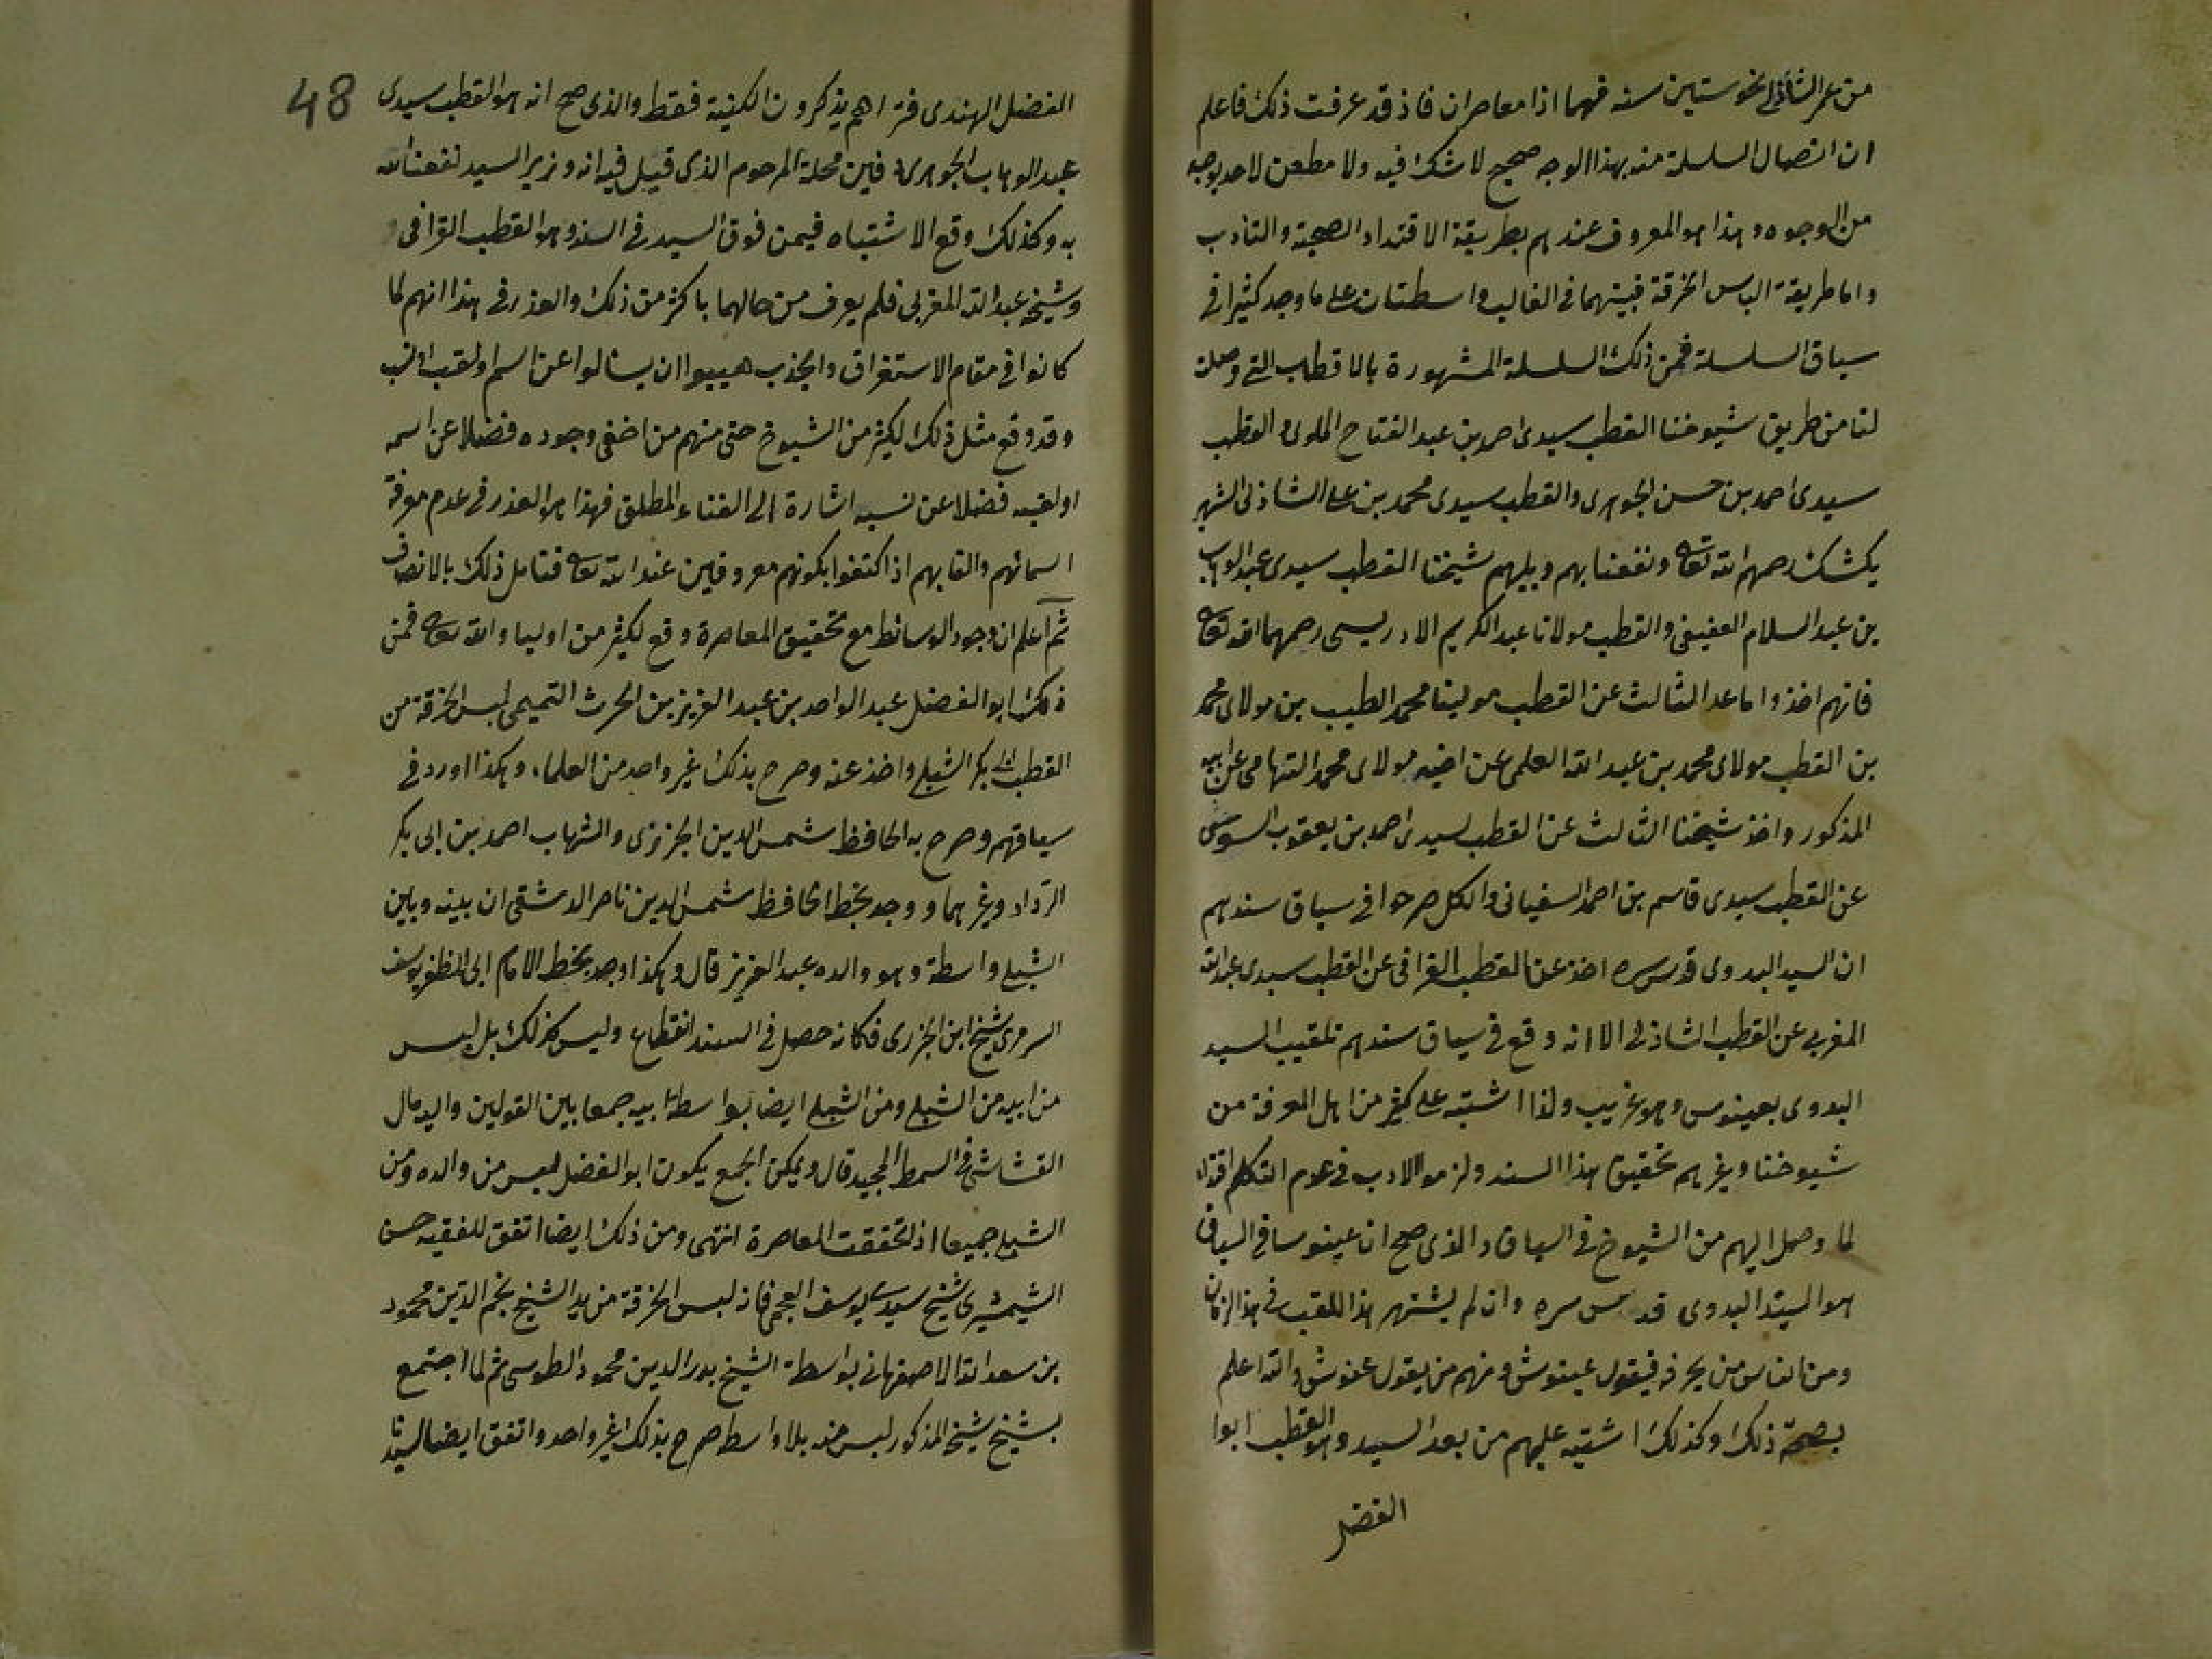 من عمر الشاذلى نحو ستين سنه فهما اذا معاصران فاذ قد عرفت ذلك فاعلم
ان اتصال السلسلة منه بهذا الوجه صحيح لا شك فيه ولا مطعن لاحد بوجه
من الوجوه وهذا هو المعروف عندهم بطريقة الاقتداء الصحبة والتادب
واما طريقة الباس الخرقة فبينهما فى الغالب واسطتان على ما وجد كثيرا فى
سياق السلسلة فمن ذلك السلسلة المشهورة بالاقطاب التى وصلت
لنا من طريق شيوخنا القطب سيدى احمد بن عبد الفتاح الملوى والقطب
سيدى احمد بن حسن الجوهرى والقطب سيدى محمد بن على الشاذلى الشهير
بكشك رحمهم الله تعالى ونفعنا بهم ويليهم شيخنا القطب سيدى عبد الوهاب
بن عبد السلام العفيفى والقطب مولانا عبد الكريم الادريسى رحمهما الله تعالى
فانهم اخذوا ما عدا الثالث عن القطب مولينا محمد الطيب بن مولاى محمد
بن القطب مولاى محمد بن عبد الله العلمى عن اخيه مولاى محمد التهامى عن ابيه
المذكور واخذ شيخنا الثالث عن القطب سيدى احمد بن يعقوب السوسى
عن القطب سيدى قاسم بن احمد السفيانى والكل صرحوا فى سياق سندهم
ان السيد البدوى قدس سره اخذ عن القطب القرافى عن القطب سيدى عبد الله
المغربى عن القطب الشاذلى الا انه وقع فى سياق سندهم تلقيب السيد
البدوى بعينوس وهو غريب ولذا اشتبه على كثير من اهل المعرفة من
شيوخنا وغيرهم تحقيق هذا السند ولزموا الادب فى عدم التكلم اقتداء
لما وصل اليهم من الشيوخ فى السياق والذى صح ان عينوسا فى السياق
هو السيد البدوى قدس سره وان لم يشتهر هذا اللقب فى هذا الزمان
ومن الناس من يحرفه فيقول عينوش ومنهم من يقول عنوش والله اعلم
بصحة ذلك وكذلك اشتبه عليهم من بعد السيد وهو القطب ابوا
الفضل
48
الفضل الهندى فتراهم يذكرون الكنية فقط والذى صح انه هو القطب سيدى
عبد الوهاب الجوهرى دفين محلة المرحوم الذى قيل فيه انه وزير السيد نفعنا الله
به وكذلك وقع الاشتباه فيمن فوق السيد فى السند وهو القطب القرافى
وشيخه عبد الله المغربى فلم يعرف من حالهما باكثر من ذلك والعذر فى هذا انهم لما
كانوا فى مقام الاستغراق والجذب هيبوا ان يسالوا عن اسم او لقب او نسب
وقد وقع مثل ذلك لكثير من الشيوخ حتى منهم من اخفى وجوده فضلا عن اسمه
او لقبه فضلا عن نسبه اشارة الى الفناء المطلق فهذا هو العذر فى عدم معرفة
اسمائهم والقابهم اذا كتفوا بكونهم معروفين عند الله تعالى فتامل ذلك بالانصاف
ثم اعلم ان وجود الوسائط مع تحقيق المعاصرة وقع لكثير من اولياء الله تعالى فمن
ذلك ابو الفضل عبد الواحد بن عبد العزيز بن الحرث التميمى لبس الخرقة من
القطب ابى بكر الشبلى واخذ عنه وصرح بذلك غير واحد من العلماء وهكذا اورد فى
سياقهم وصرح به الحافظ شمس الدين الجزرى والشهاب احمد بن ابى بكر
الرداد وغيرهما ووجد بخط الحافظ شمس الدين ناصر الدمشقى ان بينه وبين
الشبلى واسطة وهو والده عبد العزيز قال وهكذا وجد بخط الامام ابى المظفر يوسف
السرمرى شيخ ابن الجزرى فكانه حصل فى السند انقطاع وليس كذلك بل لبس
من ابيه من الشبلى ومن الشبلى ايضا بواسطة ابيه جمعا بين القولين واليه مال
القشاشى فى السمط المجيد قال ويمكن الجمع بكون ابو الفضل لبس من والده ومن
الشبلى جميعا اذ تحققت المعاصرة انتهى ومن ذلك ايضا اتفق للفقيه حسن
الشيمشيرى شيخ سيدى يوسف العجمى فانه لبس الخرقة من يد الشيخ نجم الدين محمود
بن سعد الله الاصفهانى بواسطة الشيخ بدر الدين محمود الطوسى ثم لما اجتمع
بشيخ شيخه المذكور لبس منه بلا واسطه صرح بذلك غير واحد واتفق ايضا